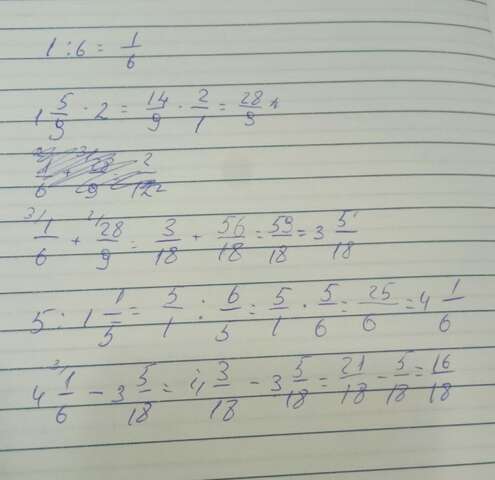 1 : 6 = 1/6
1 5/9 · 2 = 14/9 · 2/1 = 28/9
1/6 + 28/9 = 3/18 + 56/18 = 59/18 = 3 5/18
5 : 1 1/5 = 5/1 : 6/5 = 5/1 · 5/6 = 25/6 = 4 1/6
4 1/6 - 3 5/18 = 4 3/18 - 3 5/18 = 21/18 - 5/18 = 16/18